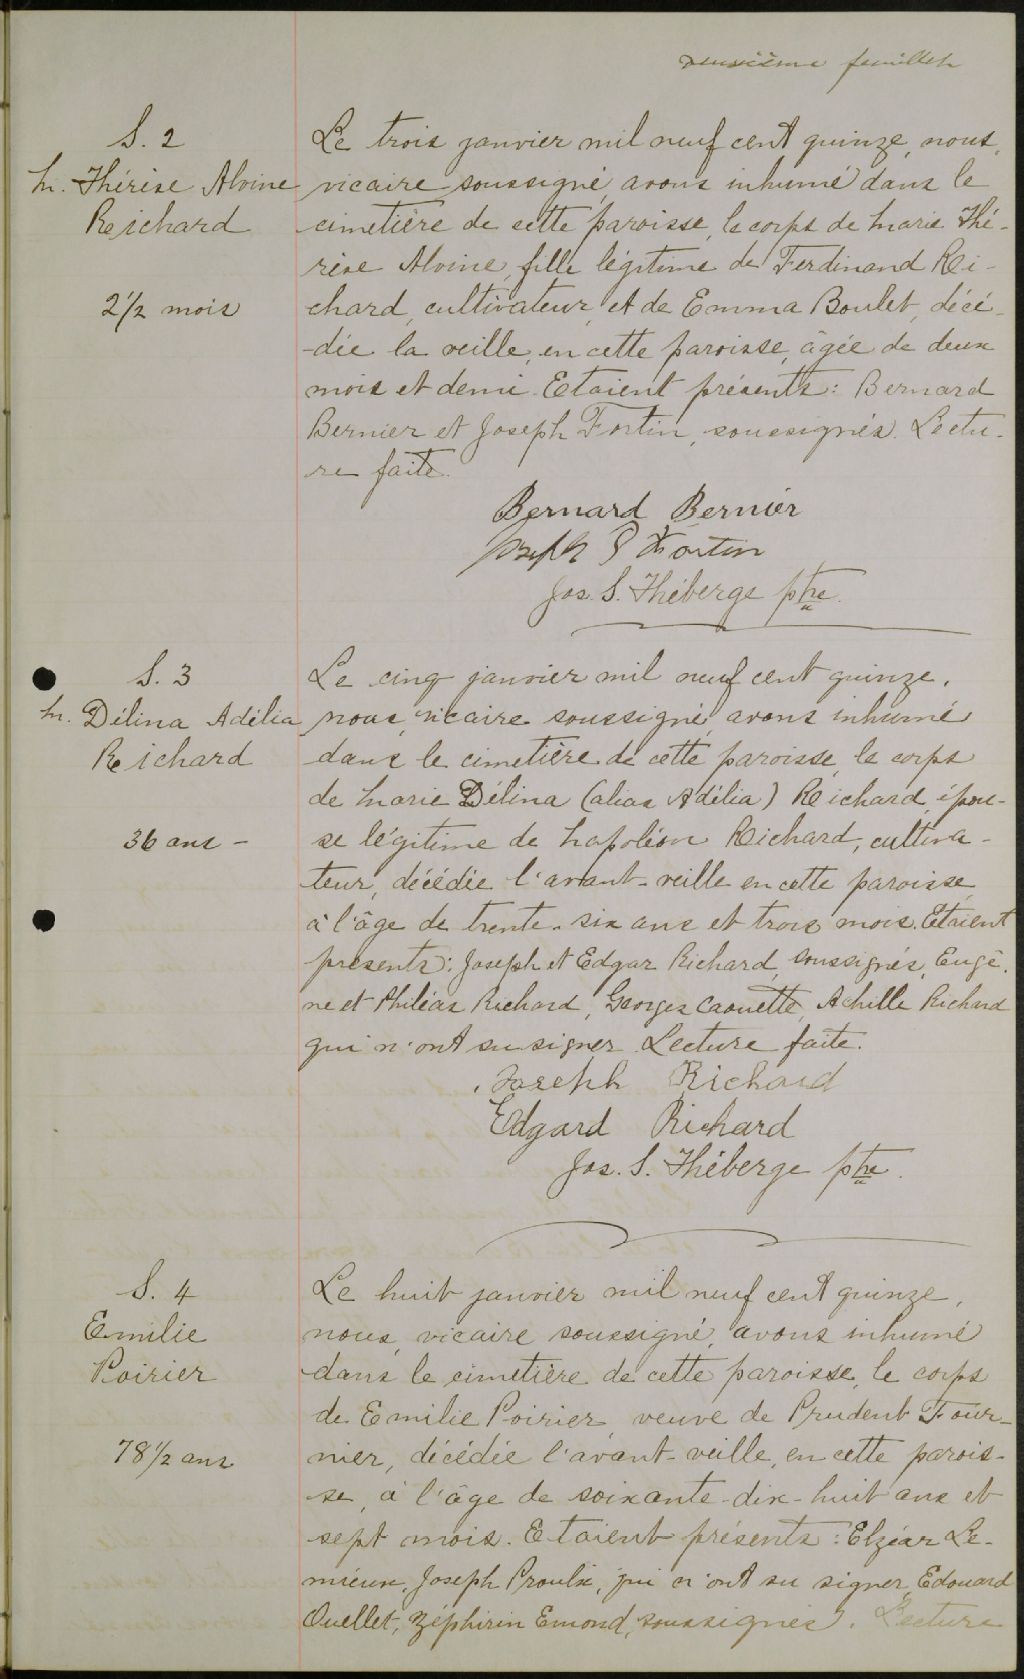 deuxième feuillet
S. 2
M. Thérèse Alvine
Reichard
2 1/2 mois
Le trois janvier mil neuf cent quinze, nous,
vicaire soussigné, avons inhumé dans le
cimetière de cette paroisse, le corps de Marie Thé-
rèse Alvine, fille légitime de Ferdinand Rei-
chard, cultivateur, et de Emma Boulet, décé-
dée la veille, en cette paroisse, âgée de deux
mois et demi. Etaient présents: Bernard
Bernier et Joseph Fortin, soussignés. Lectu-
re faite.
Bernard Bernier
Joseph P Fortin
Jos. S. Théberge ptre.
S. 3
M. Délina Adélia
Reichard
36 ans -
Le cinq janvier mil neuf cent quinze,
nous, vicaire soussigné, avons inhumé
dans le cimetière de cette paroisse, le corps
de Marie Délina (alias Adélia) Reichard, épou-
se légitime de Napoléon Reichard, cultiva-
teur, décédée l'avant-veille en cette paroisse,
à l'âge de trente-six ans et trois mois. Etaient
présents: Joseph et Edgar Richard, soussignés, Eugè-
ne et Philéas Richard, Georges Caouette, Achille Richard
qui n'ont su signer. Lecture faite.
Joseph Richard
Edgard Richard
Jos. S. Théberge ptre.
S. 4
Emilie
Poirier
78 1/2 ans
Le huit janvier mil neuf cent quinze,
nous, vicaire soussigné, avons inhumé
dans le cimetière de cette paroisse, le corps
de Emilie Poirier, veuve de Prudent Four-
nier, décédée l'avant-veille, en cette parois-
se, à l'âge de soixante-dix-huit ans et
sept mois. Etaient présents: Elzéar Le-
mieux, Joseph Proulx, qui n'ont su signer, Edouard
Ouellet, Zéphirin Emond, soussignés. Lecture